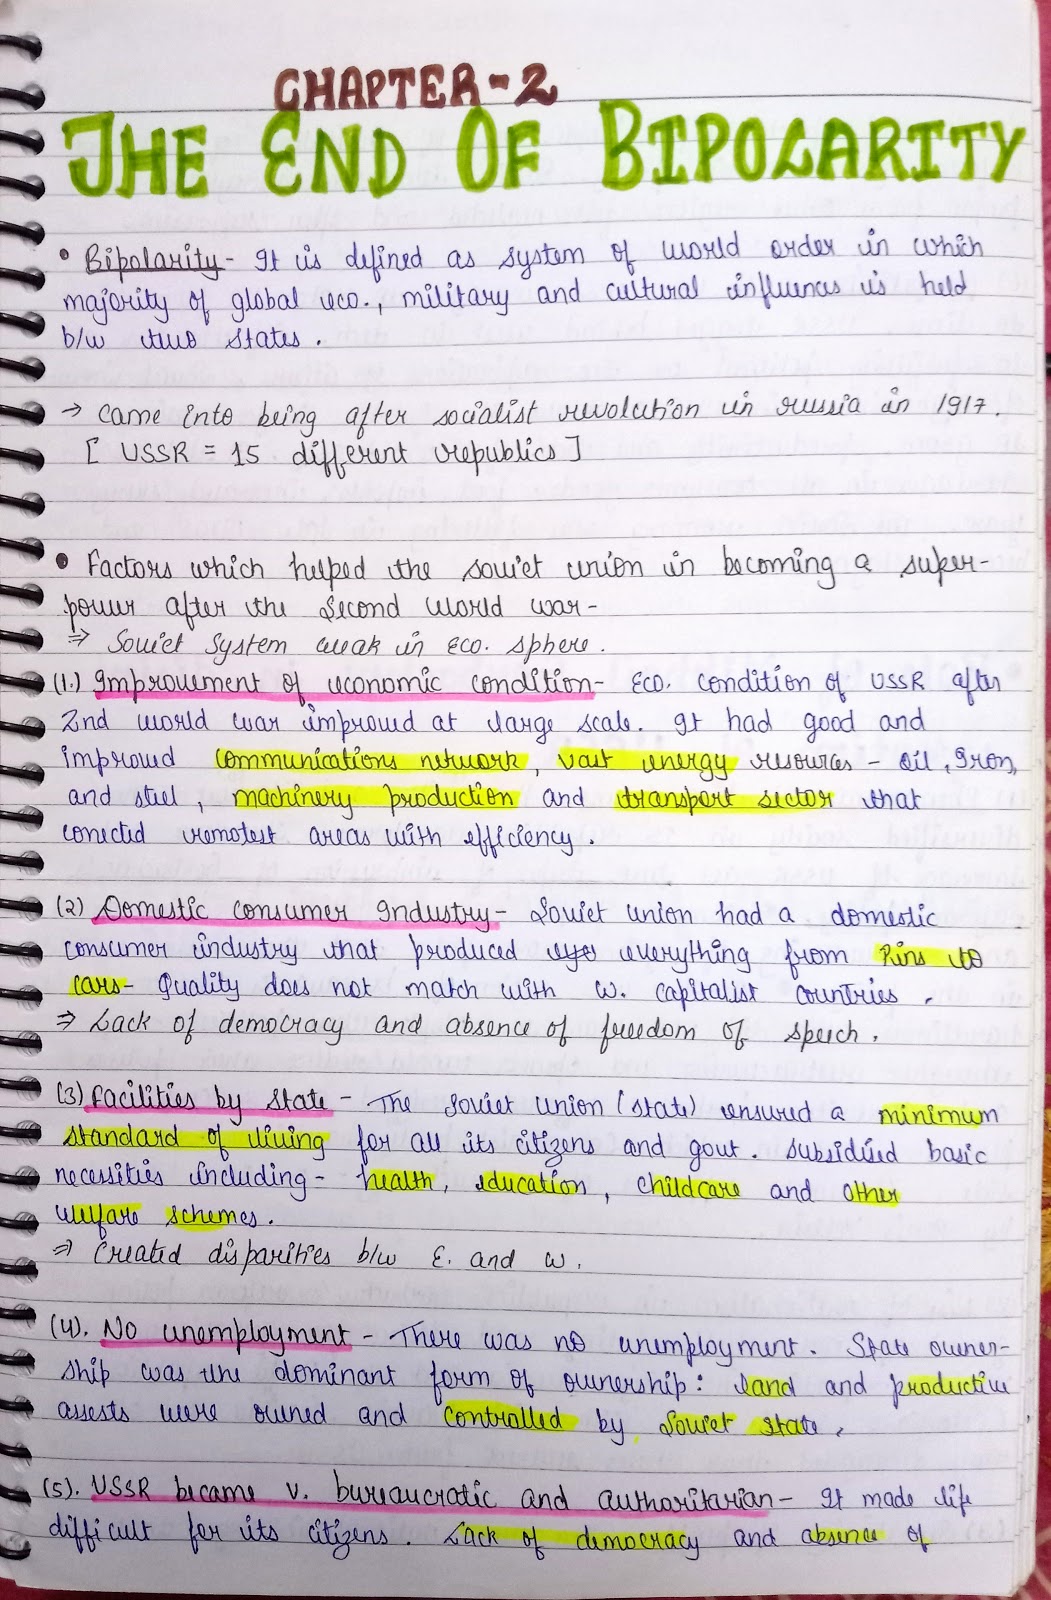 CHAPTER-2
THE END OF BIPOLARITY
• Bipolarity - It is defined as system of world order in which
majority of global eco., military and cultural influences is held
b/w two states.
→ Came into being after socialist revolution in russia in 1917.
[USSR = 15 different republics]
• Factors which helped the soviet union in becoming a super-
power after the Second World War-
⇒ Soviet System weak in Eco. sphere.
(1.) Improvement of economic condition- Eco. condition of USSR after
2nd world war improved at large scale. It had good and
improved communications network, vast energy resources - oil, Iron,
and steel, machinery production and transport sector that
conected remotest areas with efficiency.
(2) Domestic consumer Industry- Soviet union had a domestic
consumer industry that produced everything from Pins to
cars- Quality does not match with w. capitalist countries.
⇒ Lack of democracy and absence of freedom of speech.
(3) Facilities by State - The Soviet union (state) ensured a minimum
standard of living for all its citizens and govt. subsidised basic
necessities including- health, education, childcare and other
welfare schemes.
⇒ Created disparities b/w E. and w.
(4). No unemployment - There was no unemployment. State owner-
ship was the dominant form of ownership: land and productive
assests were owned and controlled by Soviet state.
(5). USSR became v. bureaucratic and authoritarian- It made life
difficult for its citizens. Lack of democracy and absence of